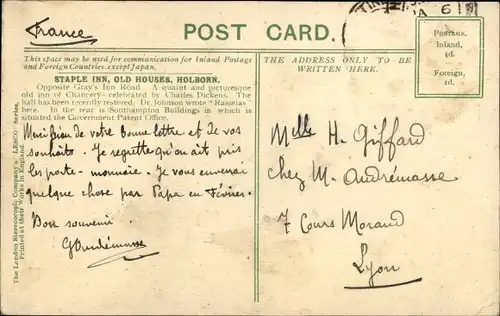 France
POST CARD.
A 6
Postage.
Inland,
½d.
Foreign,
1d.
This space may be used for communication for Inland Postage
and Foreign Countries, except Japan.
STAPLE INN, OLD HOUSES, HOLBORN.
Opposite Gray's Inn Road. A quaint and picturesque
old inn of Chancery—celebrated by Charles Dickens. The
hall has been recently restored. Dr. Johnson wrote "Rasselas"
here. In the rear is Southampton Buildings in which is
situated the Government Patent Office.
Merci bien de votre bonne lettre et de vos
souhaits. Je regrette qu'on ait pris
les porte-monnaie. Je vous enverrai
quelque chose par Papa en Février.
Bon souvenir.
The London Stereoscopic Company's "LESCO" Series.
Printed at their Works in England.
THE ADDRESS ONLY TO BE
WRITTEN HERE.
Melle H. Giffard
chez M. Andrémasse
7 Cours Morand
Lyon